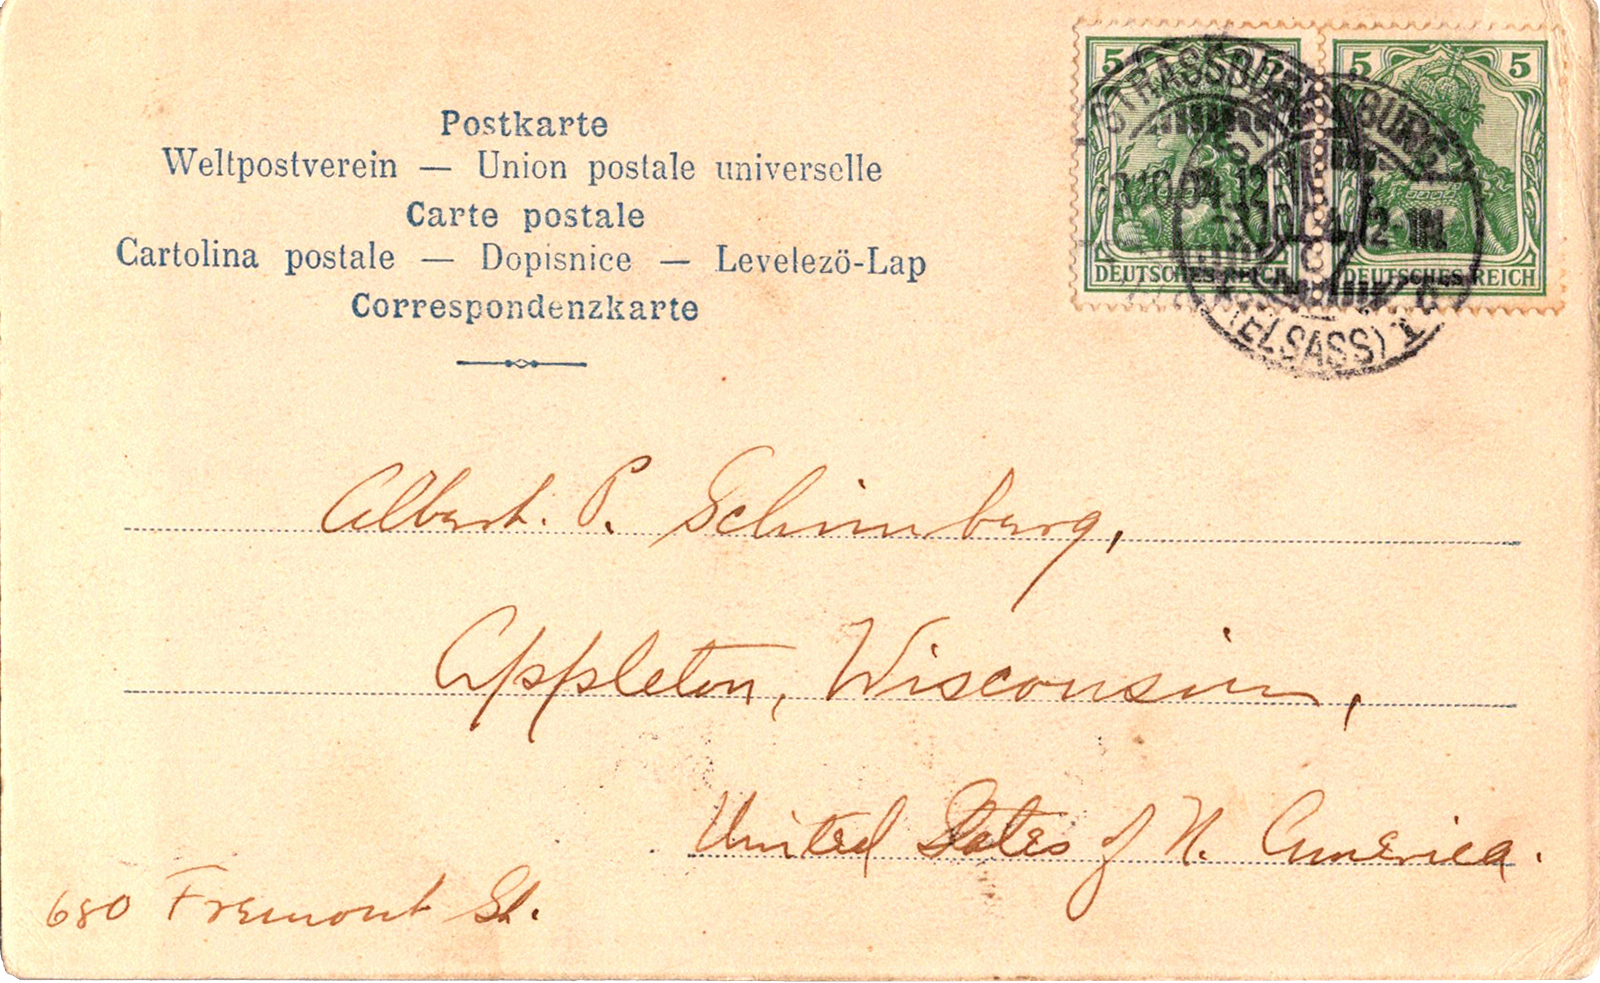 Postkarte
Weltpostverein — Union postale universelle
Carte postale
Cartolina postale — Dopisnice — Levelezö-Lap
Correspondenzkarte
5
5 5
DEUTSCHES REICH
DEUTSCHES REICH
STRASSBURG
(ELSASS)
Albert. P. Schimberg,
Appleton, Wisconsin,
United States of N. America.
680 Fremont St.